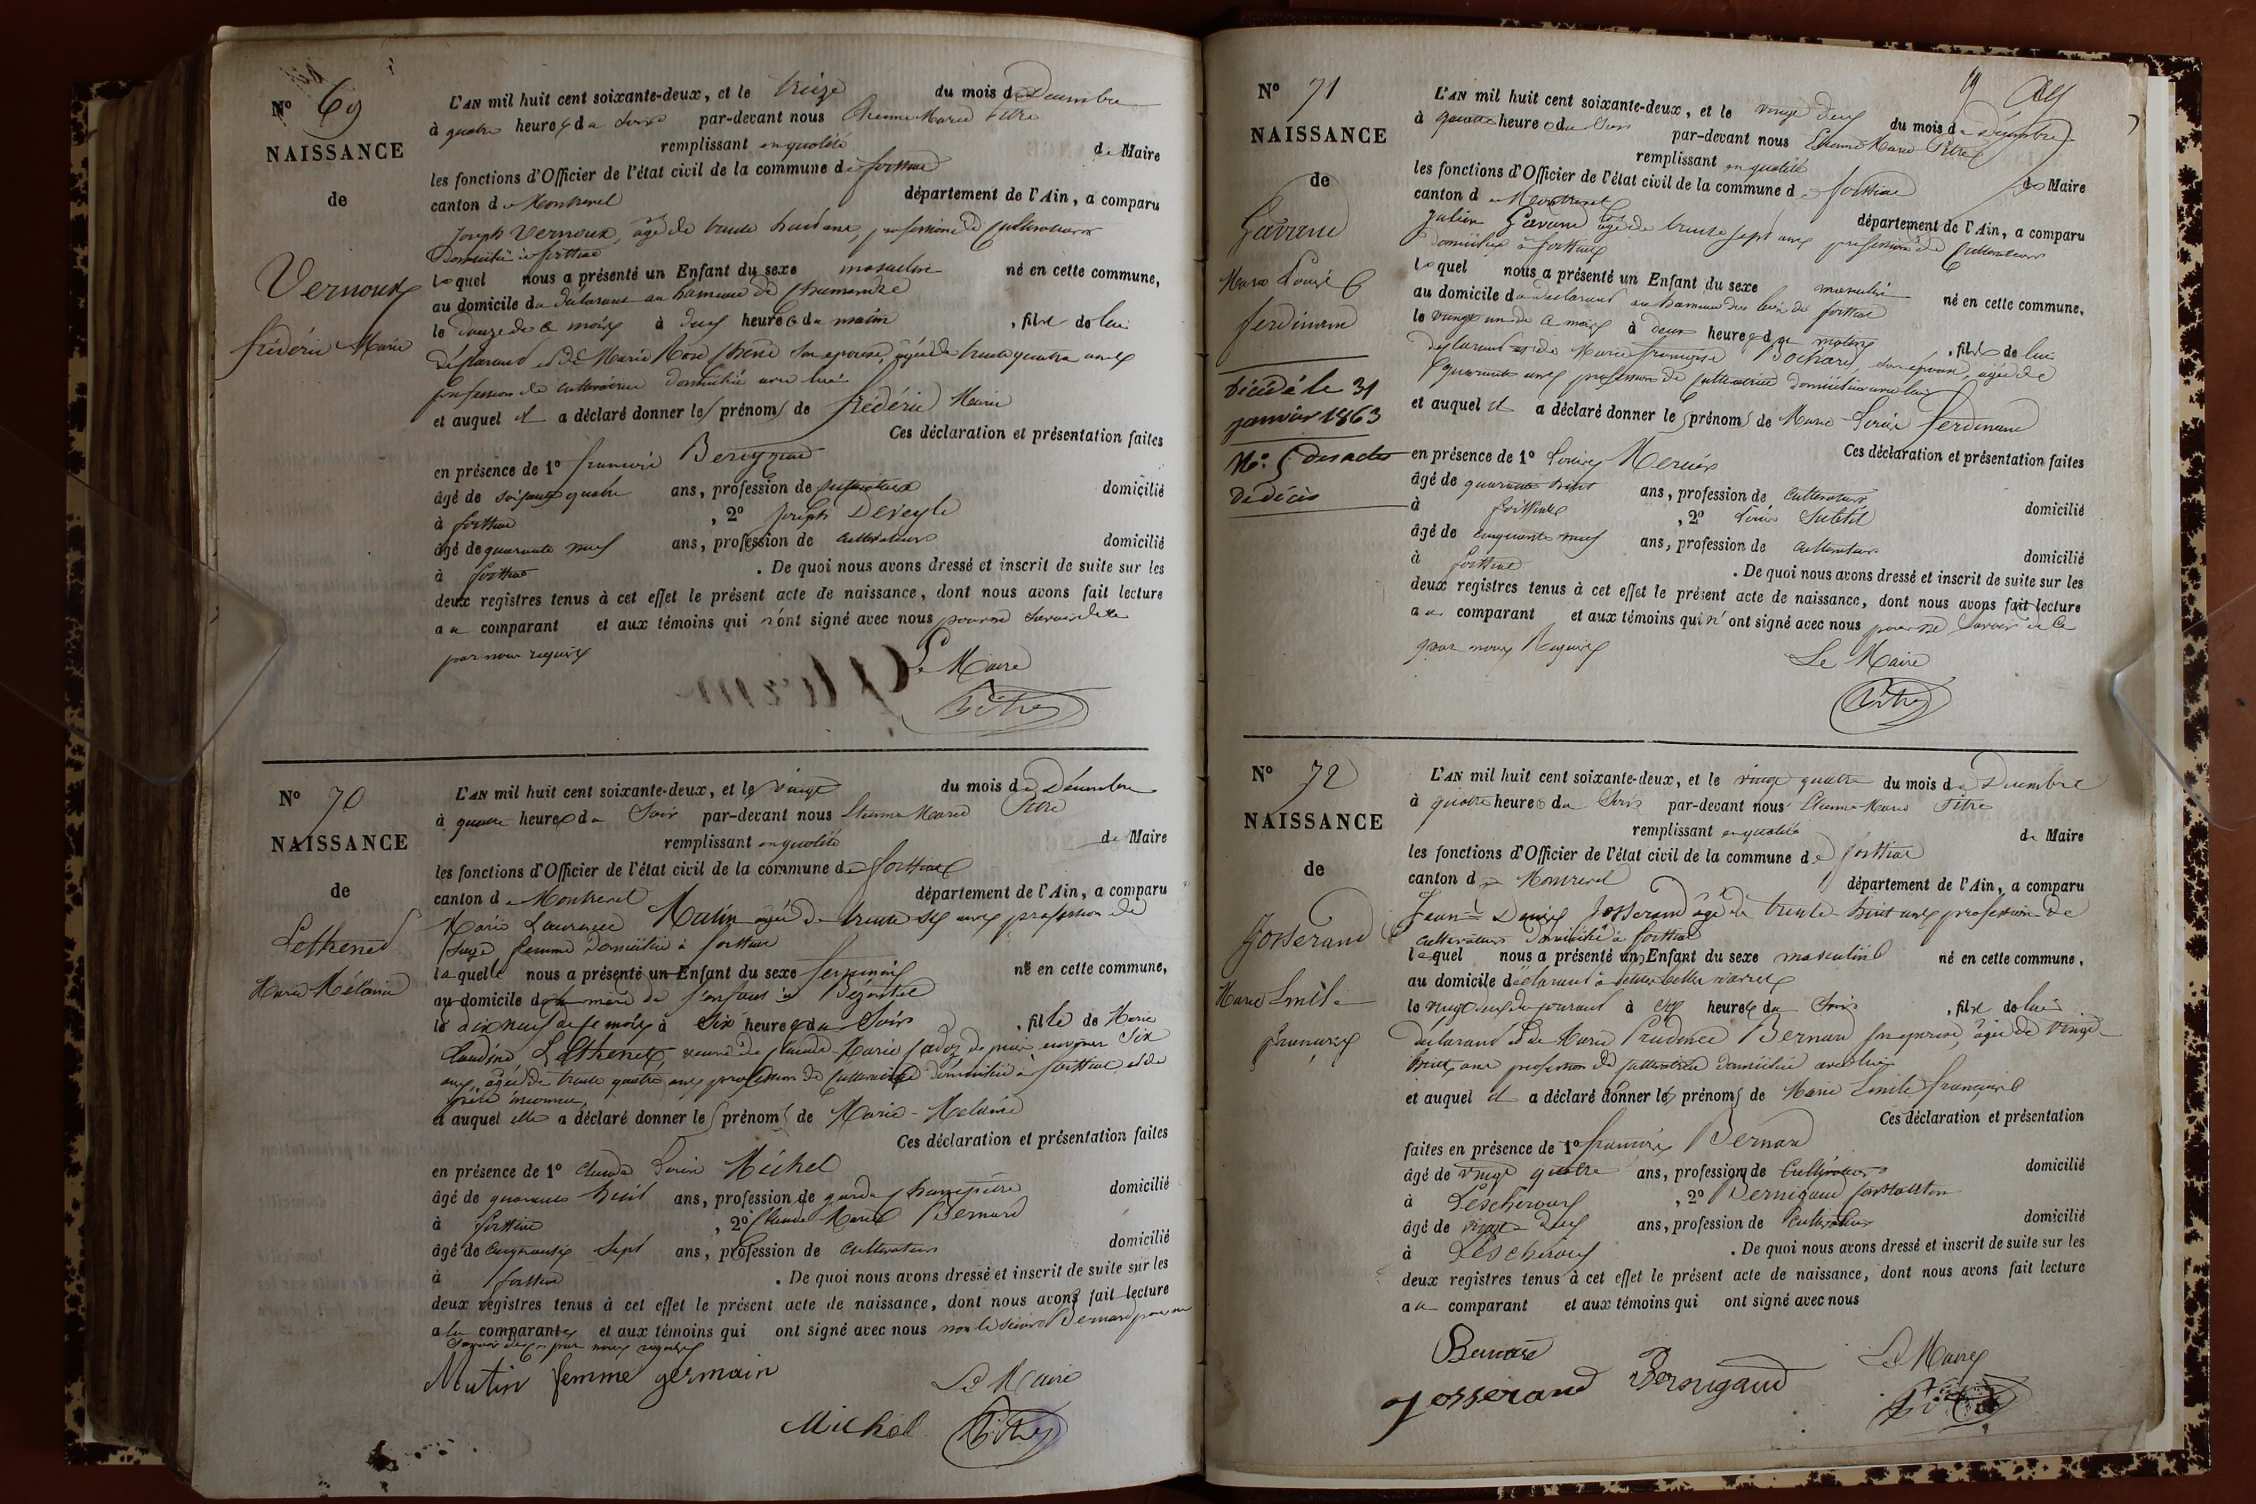 N° 69
NAISSANCE
de
Vernoux
frédéric Marie
L'AN mil huit cent soixante-deux, et le treize du mois de Décembre
à quatre heures du soir par-devant nous Etienne Marie Pitre
remplissant en qualité de Maire
les fonctions d'Officier de l'état civil de la commune de foissiat
canton de Montrevel département de l'Ain, a comparu
Joseph Vernoux, agé de trente huit ans, profession de Cultivateur
Domicilié à foissiat
lequel nous a présenté un Enfant du sexe masculin né en cette commune,
au domicile du déclarant au hameau de
le douze de ce mois à deux heures du matin, fils de lui
Déclarant et de Marie son épouse, agée de trente quatre ans
profession de cultivatrice domiciliée avec lui
et auquel il a déclaré donner les prénoms de frédéric Marie
Ces déclaration et présentation faites
en présence de 1° françois
âgé de soixante quatre ans, profession de cultivateur domicilié
à foissiat, 2° joseph Deveyle
âgé de quarante neuf ans, profession de cultivateur domicilié
à foissiat. De quoi nous avons dressé et inscrit de suite sur les
deux registres tenus à cet effet le présent acte de naissance, dont nous avons fait lecture
au comparant et aux témoins qui n'ont signé avec nous pour ne savoir de ce
par nous requis
Le Maire
Pitre
N° 70
NAISSANCE
de
Lethenet
Marie Mélanie
L'AN mil huit cent soixante-deux, et le vingt du mois de Décembre
à quatre heures du Soir par-devant nous Etienne Marie Pitre
remplissant en qualité de Maire
les fonctions d'Officier de l'état civil de la commune de foissiat
canton de Montrevel département de l'Ain, a comparu
Marie Laurence Mutin agée de trente six ans profession de
Sage femme domiciliée à foissiat
laquelle nous a présenté un Enfant du sexe féminin né en cette commune,
au domicile de la mère de l'enfant
le dix neuf de ce mois à six heures du Soir, fille de Marie
Claudine Lethenet, veuve de Claude Marie depuis environ Six
ans, agée de trente quatre ans profession de cultivatrice domiciliée à foissiat et de
père inconnu,
et auquel elle a déclaré donner les prénoms de Marie-Melanie
Ces déclaration et présentation faites
en présence de 1° Claude Louis Michel
âgé de quarante huit ans, profession de garde champêtre domicilié
à foissiat, 2° Claude Marie Bernard
âgé de cinquante Sept ans, profession de cultivateur domicilié
à foissiat. De quoi nous avons dressé et inscrit de suite sur les
deux registres tenus à cet effet le présent acte de naissance, dont nous avons fait lecture
a la comparante et aux témoins qui ont signé avec nous non le sieur Bernard pour ne
savoir de ce par nous requis
Mutin femme germain
Le Maire
Michel
Pitre
N° 71
NAISSANCE
de
Gavand
Marie Louis
ferdinand
Décédé le 31
janvier 1863
N°: 5 des actes
de décès
L'AN mil huit cent soixante-deux, et le vingt deux du mois de Décembre
à quatre heures du Soir par-devant nous Etienne Marie Pitre
remplissant en qualité de Maire
les fonctions d'Officier de l'état civil de la commune de foissiat
canton de Montrevel département de l'Ain, a comparu
Julien Gavand agé de trente sept ans profession de Cultivateur
domicilié à foissiat
lequel nous a présenté un Enfant du sexe masculin né en cette commune,
au domicile du déclarant au hameau de foissiat
le vingt un de ce mois à deux heures du matin, fils de lui
déclarant et de Marie françoise Bochard, son épouse, agée de
quarante ans profession de cultivatrice domiciliée avec lui
et auquel il a déclaré donner les prénoms de Marie Louis ferdinand
Ces déclaration et présentation faites
en présence de 1° Louis Mercier
âgé de quarante huit ans, profession de cultivateur domicilié
à foissiat, 2° Louis
âgé de cinquante neuf ans, profession de cultivateur domicilié
à foissiat. De quoi nous avons dressé et inscrit de suite sur les
deux registres tenus à cet effet le présent acte de naissance, dont nous avons fait lecture
au comparant et aux témoins qui n'ont signé avec nous pour ne savoir de ce
par nous Requis
Le Maire
Pitre
N° 72
NAISSANCE
de
Josserand
Marie Emile
françois
L'AN mil huit cent soixante-deux, et le vingt quatre du mois de Décembre
à quatre heures du Soir par-devant nous Etienne Marie Pitre
remplissant en qualité de Maire
les fonctions d'Officier de l'état civil de la commune de foissiat
canton de Montrevel département de l'Ain, a comparu
Jean Denis Josserand agé de trente huit ans profession de
cultivateur domicilié à foissiat
lequel nous a présenté un Enfant du sexe masculin né en cette commune,
au domicile déclarant
le vingt du courant à heures du Soir, fils de lui
déclarant et de Marie Prudence Bernard son épouse, agée de vingt
huit ans profession de cultivatrice domiciliée avec lui
et auquel il a déclaré donner les prénoms de Marie Emile françois
Ces déclaration et présentation
faites en présence de 1° françois Bernard
âgé de vingt quatre ans, profession de Cultivateur domicilié
à Lescheroux, 2° Bernigaud
âgé de vingt deux ans, profession de cultivateur domicilié
à Lescheroux. De quoi nous avons dressé et inscrit de suite sur les
deux registres tenus à cet effet le présent acte de naissance, dont nous avons fait lecture
au comparant et aux témoins qui ont signé avec nous
Bernard
Le Maire
Josserand Bernigaud